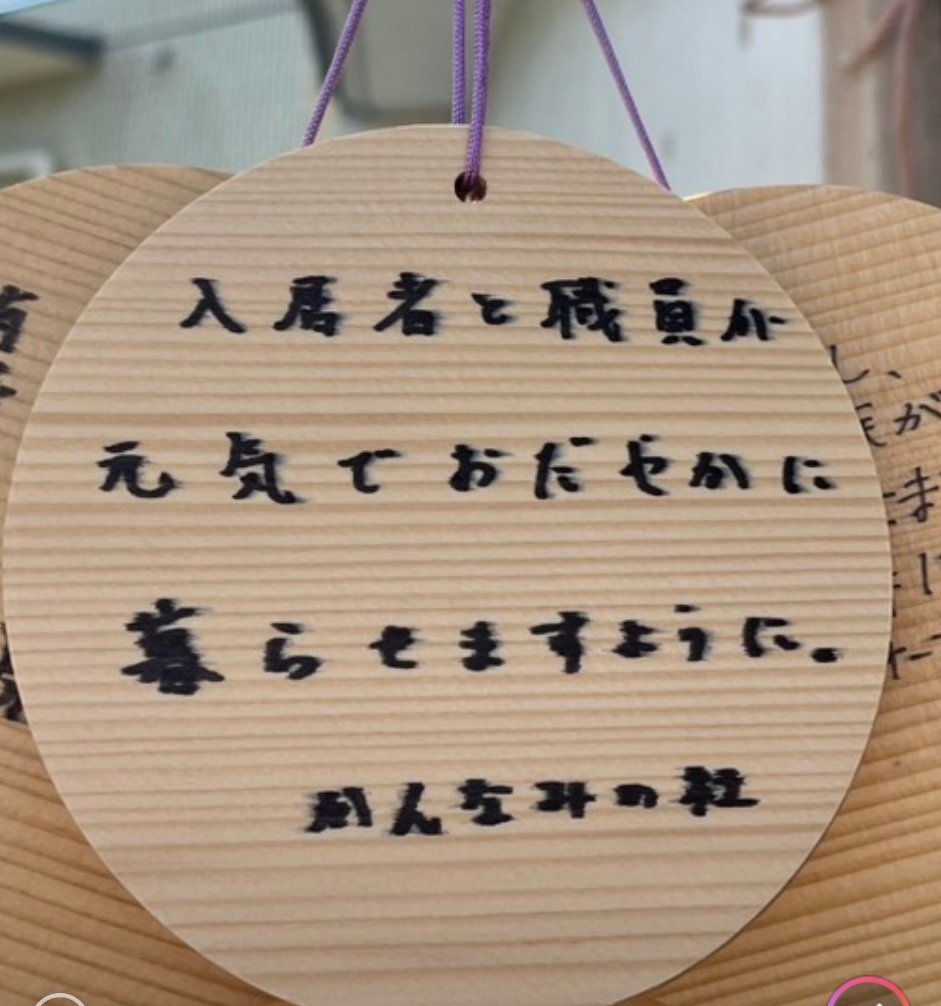 入居者と職員が
元気でおだやかに
暮らせますように。
かんなみの杜